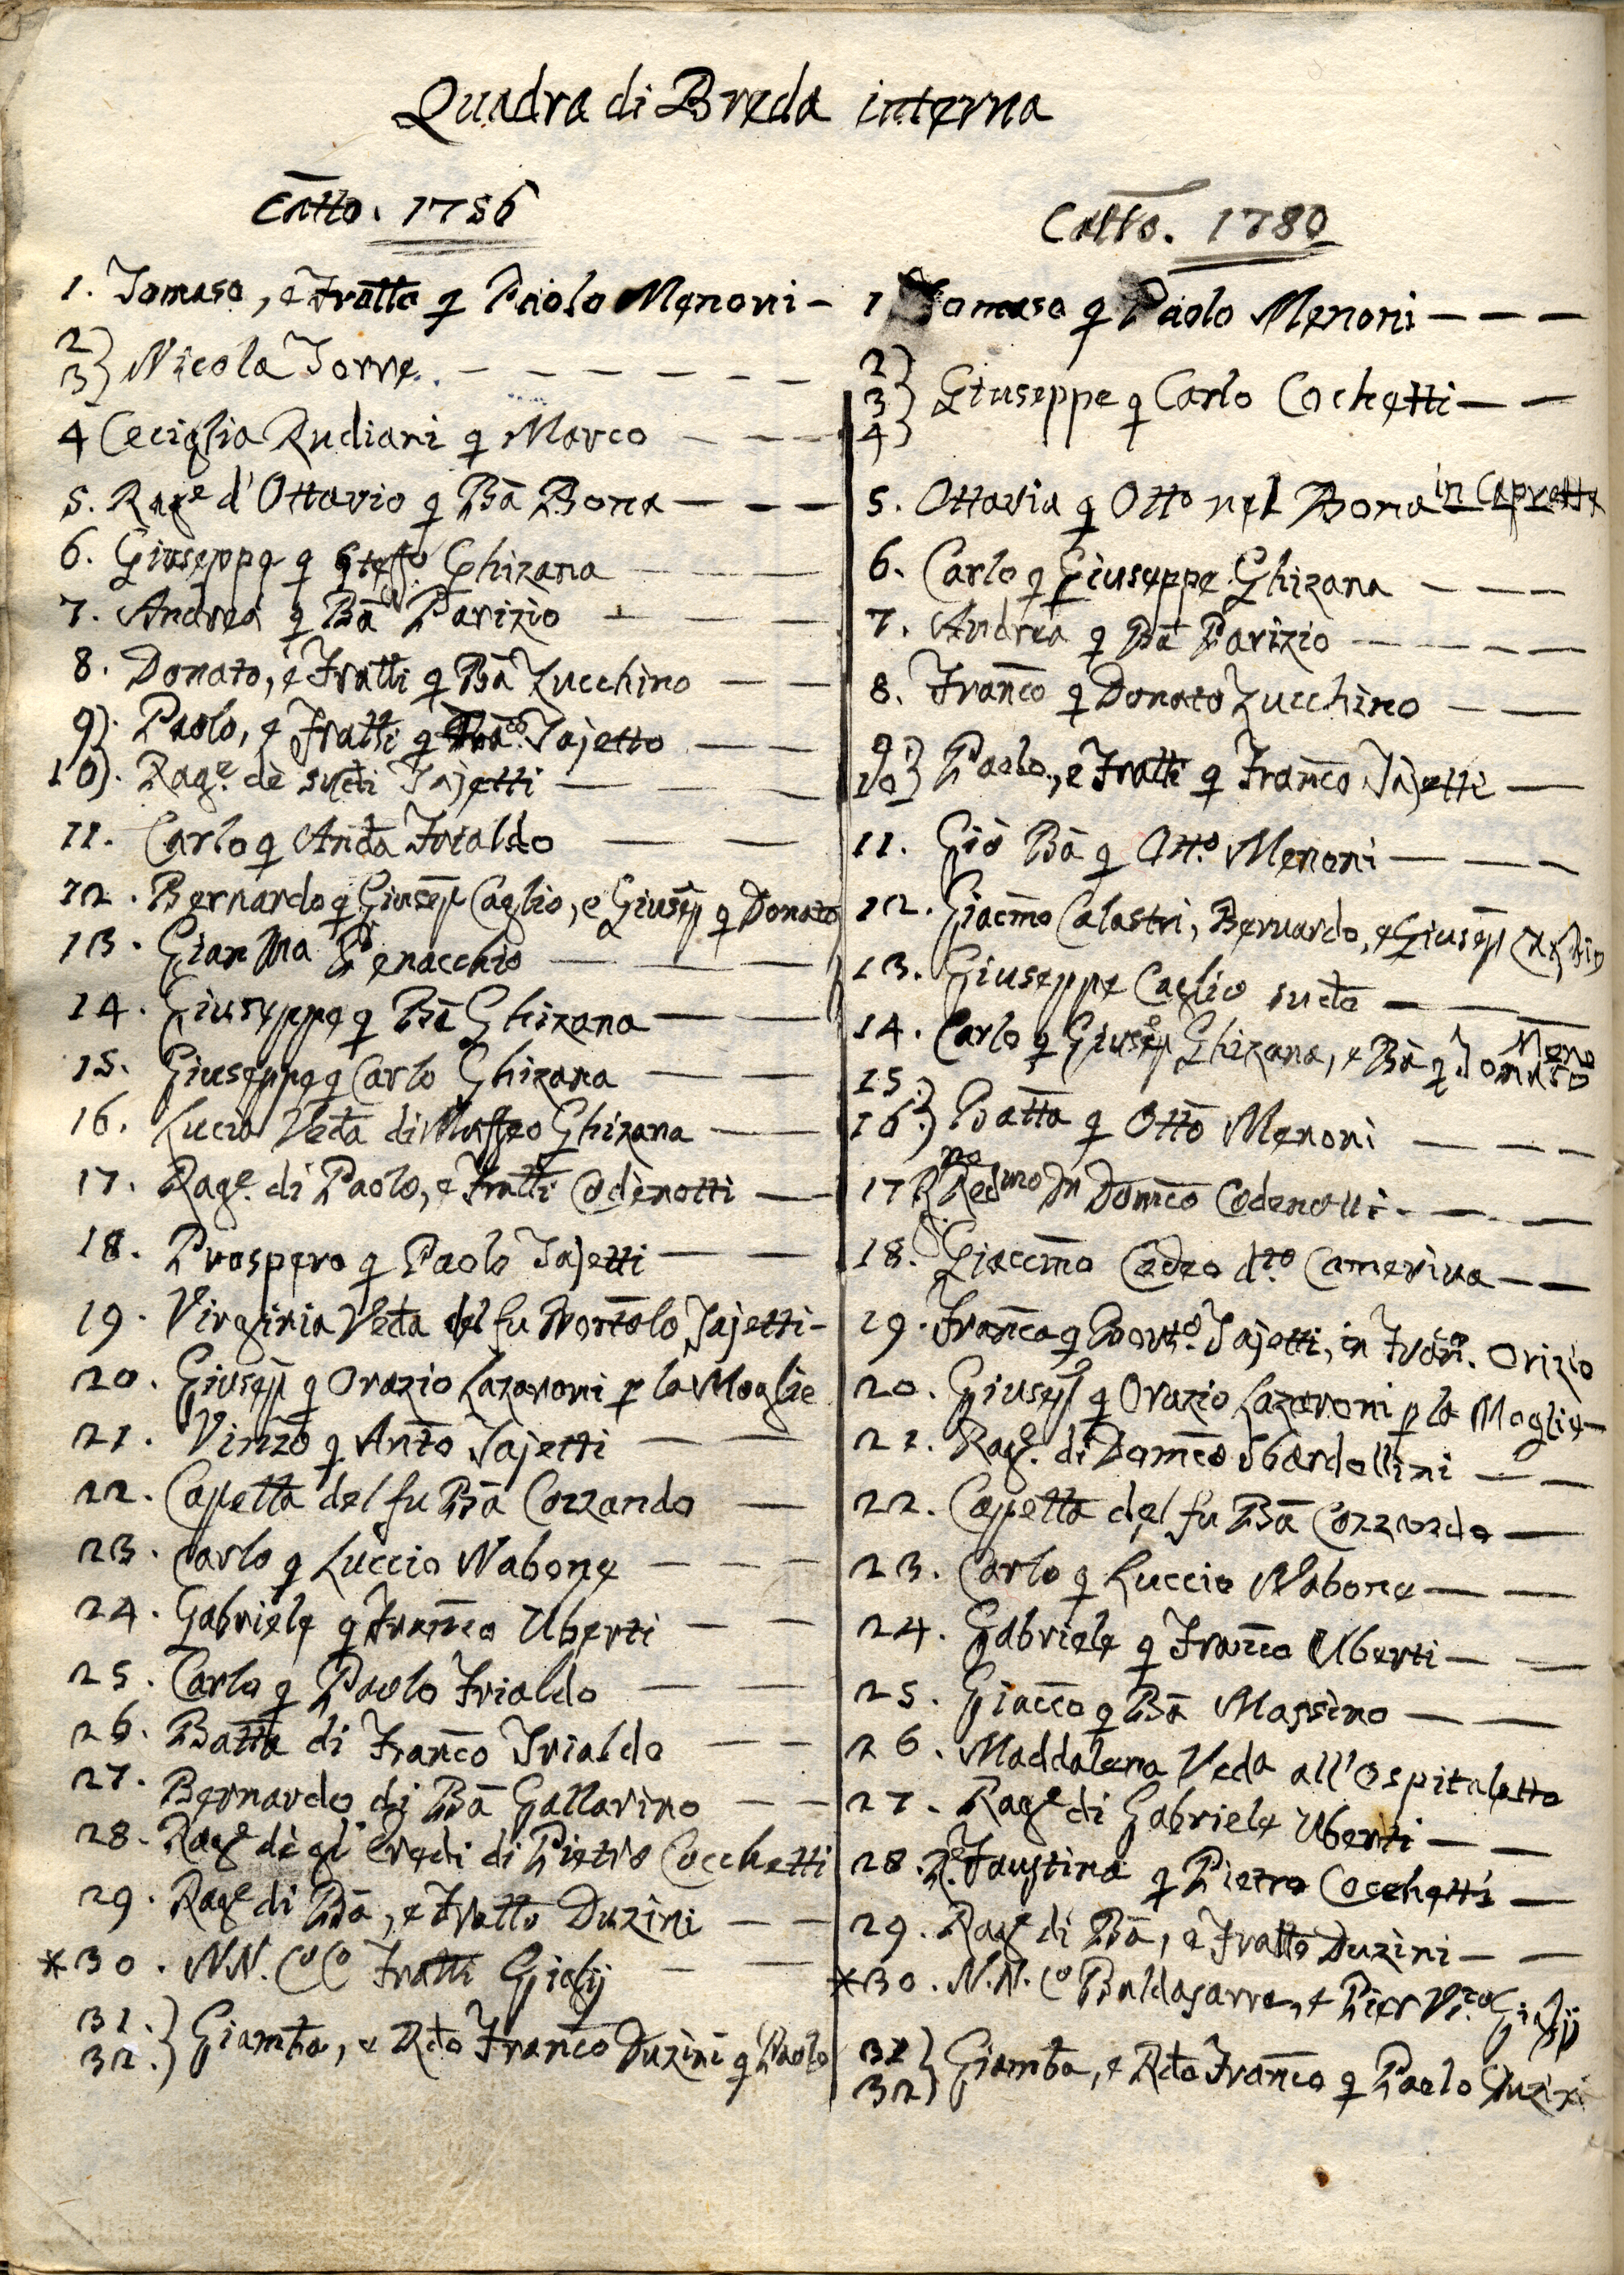 Quadra di Breda interna
Catto. 1756
1. Tomaso, e Fratto q Paolo Menoni
2
3} Nicola Torre
4 Ceciglia Rudiani q Marco
5. Rage d'Ottavio q Bã Bona
6. Giuseppe q Steffo Ghizana
7. Andrea q Bã Parizio
8. Donato, e Fratti q Bã Zucchino
9). Paolo, e Fratti q Jajetto
10). Rage. dè sudti Jajetti
11. Carlo q Anda Frialdo
12. Bernardo q Giusep Caglio, e Giusep q Donato
13. Gian Ma Penacchio
14. Giuseppe q Bã Ghizana
15. Giuseppe q Carlo Ghizana
16. Lucia Veda di Maffeo Ghizana
17. Rage. di Paolo, e Fratti Codenotti
18. Prospero q Paolo Jajetti
19. Virginia Veda del fu Bortolo Jajetti
20. Giusep q Orazio Lazaroni p la Moglie
21. Vinzo q Anto Jajetti
22. Capetta del fu Bã Cozzando
23. Carlo q Luccio Nabone
24. Gabriele q Franco Uberti
25. Carlo q Paolo Frialdo
26. Batta di Franco Frialdo
27. Bernardo di Bã Gallarino
28. Rage dè gl' Eredi di Pietro Cocchetti
29. Rage di Bã, e Fratto Duzini
*30. NN. Co Co Fratti Gigli
31.
32.} Giamba, e Rdo Franco Duzini q Paolo
Catto. 1780
1 Tomaso q Paolo Menoni
2
3} Giuseppe q Carlo Cochetti
4
5. Ottavia q Otto nel Bona in Capretti
6. Carlo q Giuseppe Ghizana
7. Andrea q Bã Parizio
8. Franco q Donato Zucchino
9.
10} Paolo, e Fratti q Franco Jajetti
11. Giò Bã q Otto Menoni
12. Giacmo Calastri, Bernardo, e Giusep Caglio
13. Giuseppe Caglio sudto
14. Carlo q Giusep Ghizana, e Bã q Tomaso Meno
15.
16.} Batta q Otto Menoni
17 Rno Redmo Dn Domco Codenotti
18. Giaccmo Cadeo dto Camerina
19. Franca q Borto. Jajetti, in Orizio
20. Giusep q Orazio Lazaroni p la Moglie
21. Rage. di Domco Sbardellini
22. Capetta del fu Bã Cozzando
23. Carlo q Luccio Nabone
24. Gabriele q Franco Uberti
25. Giacco q Bã Massino
26. Maddalena Veda all'Ospitaletto
27. Rage di Gabriele Uberti
28. Faustina q Pietro Cocchetti
29. Rage di Bã, e Fratto Duzini
*30. N.N. Co Baldasarre, e Pier Gigli
31
32} Giamba, e Rdo Franco q Paolo Duzini